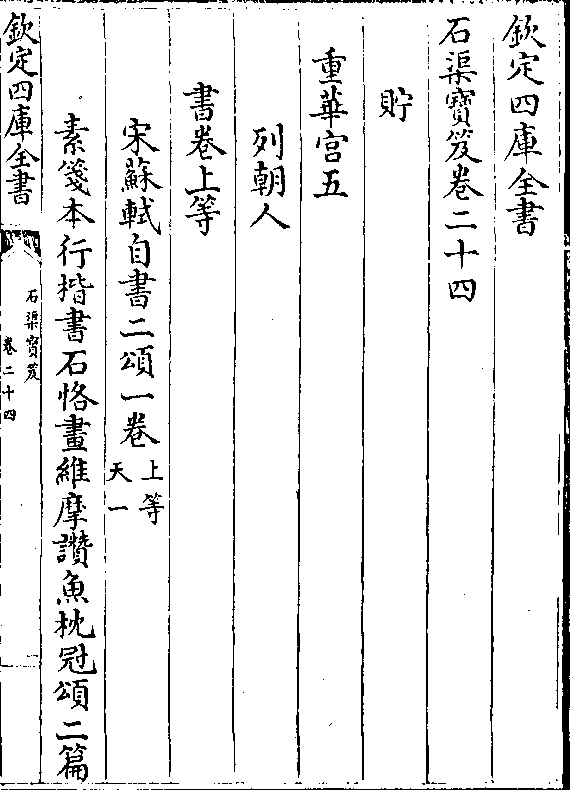 欽定四庫全書
石渠寶笈卷二十四
貯
重華宮五
列朝人
書卷上等
宋蘇軾自書二頌一卷上等天一
素箋本行楷書石恪畫維摩讚魚枕冠頌二篇
欽定四庫全書
石渠寶笈
卷二十四
一